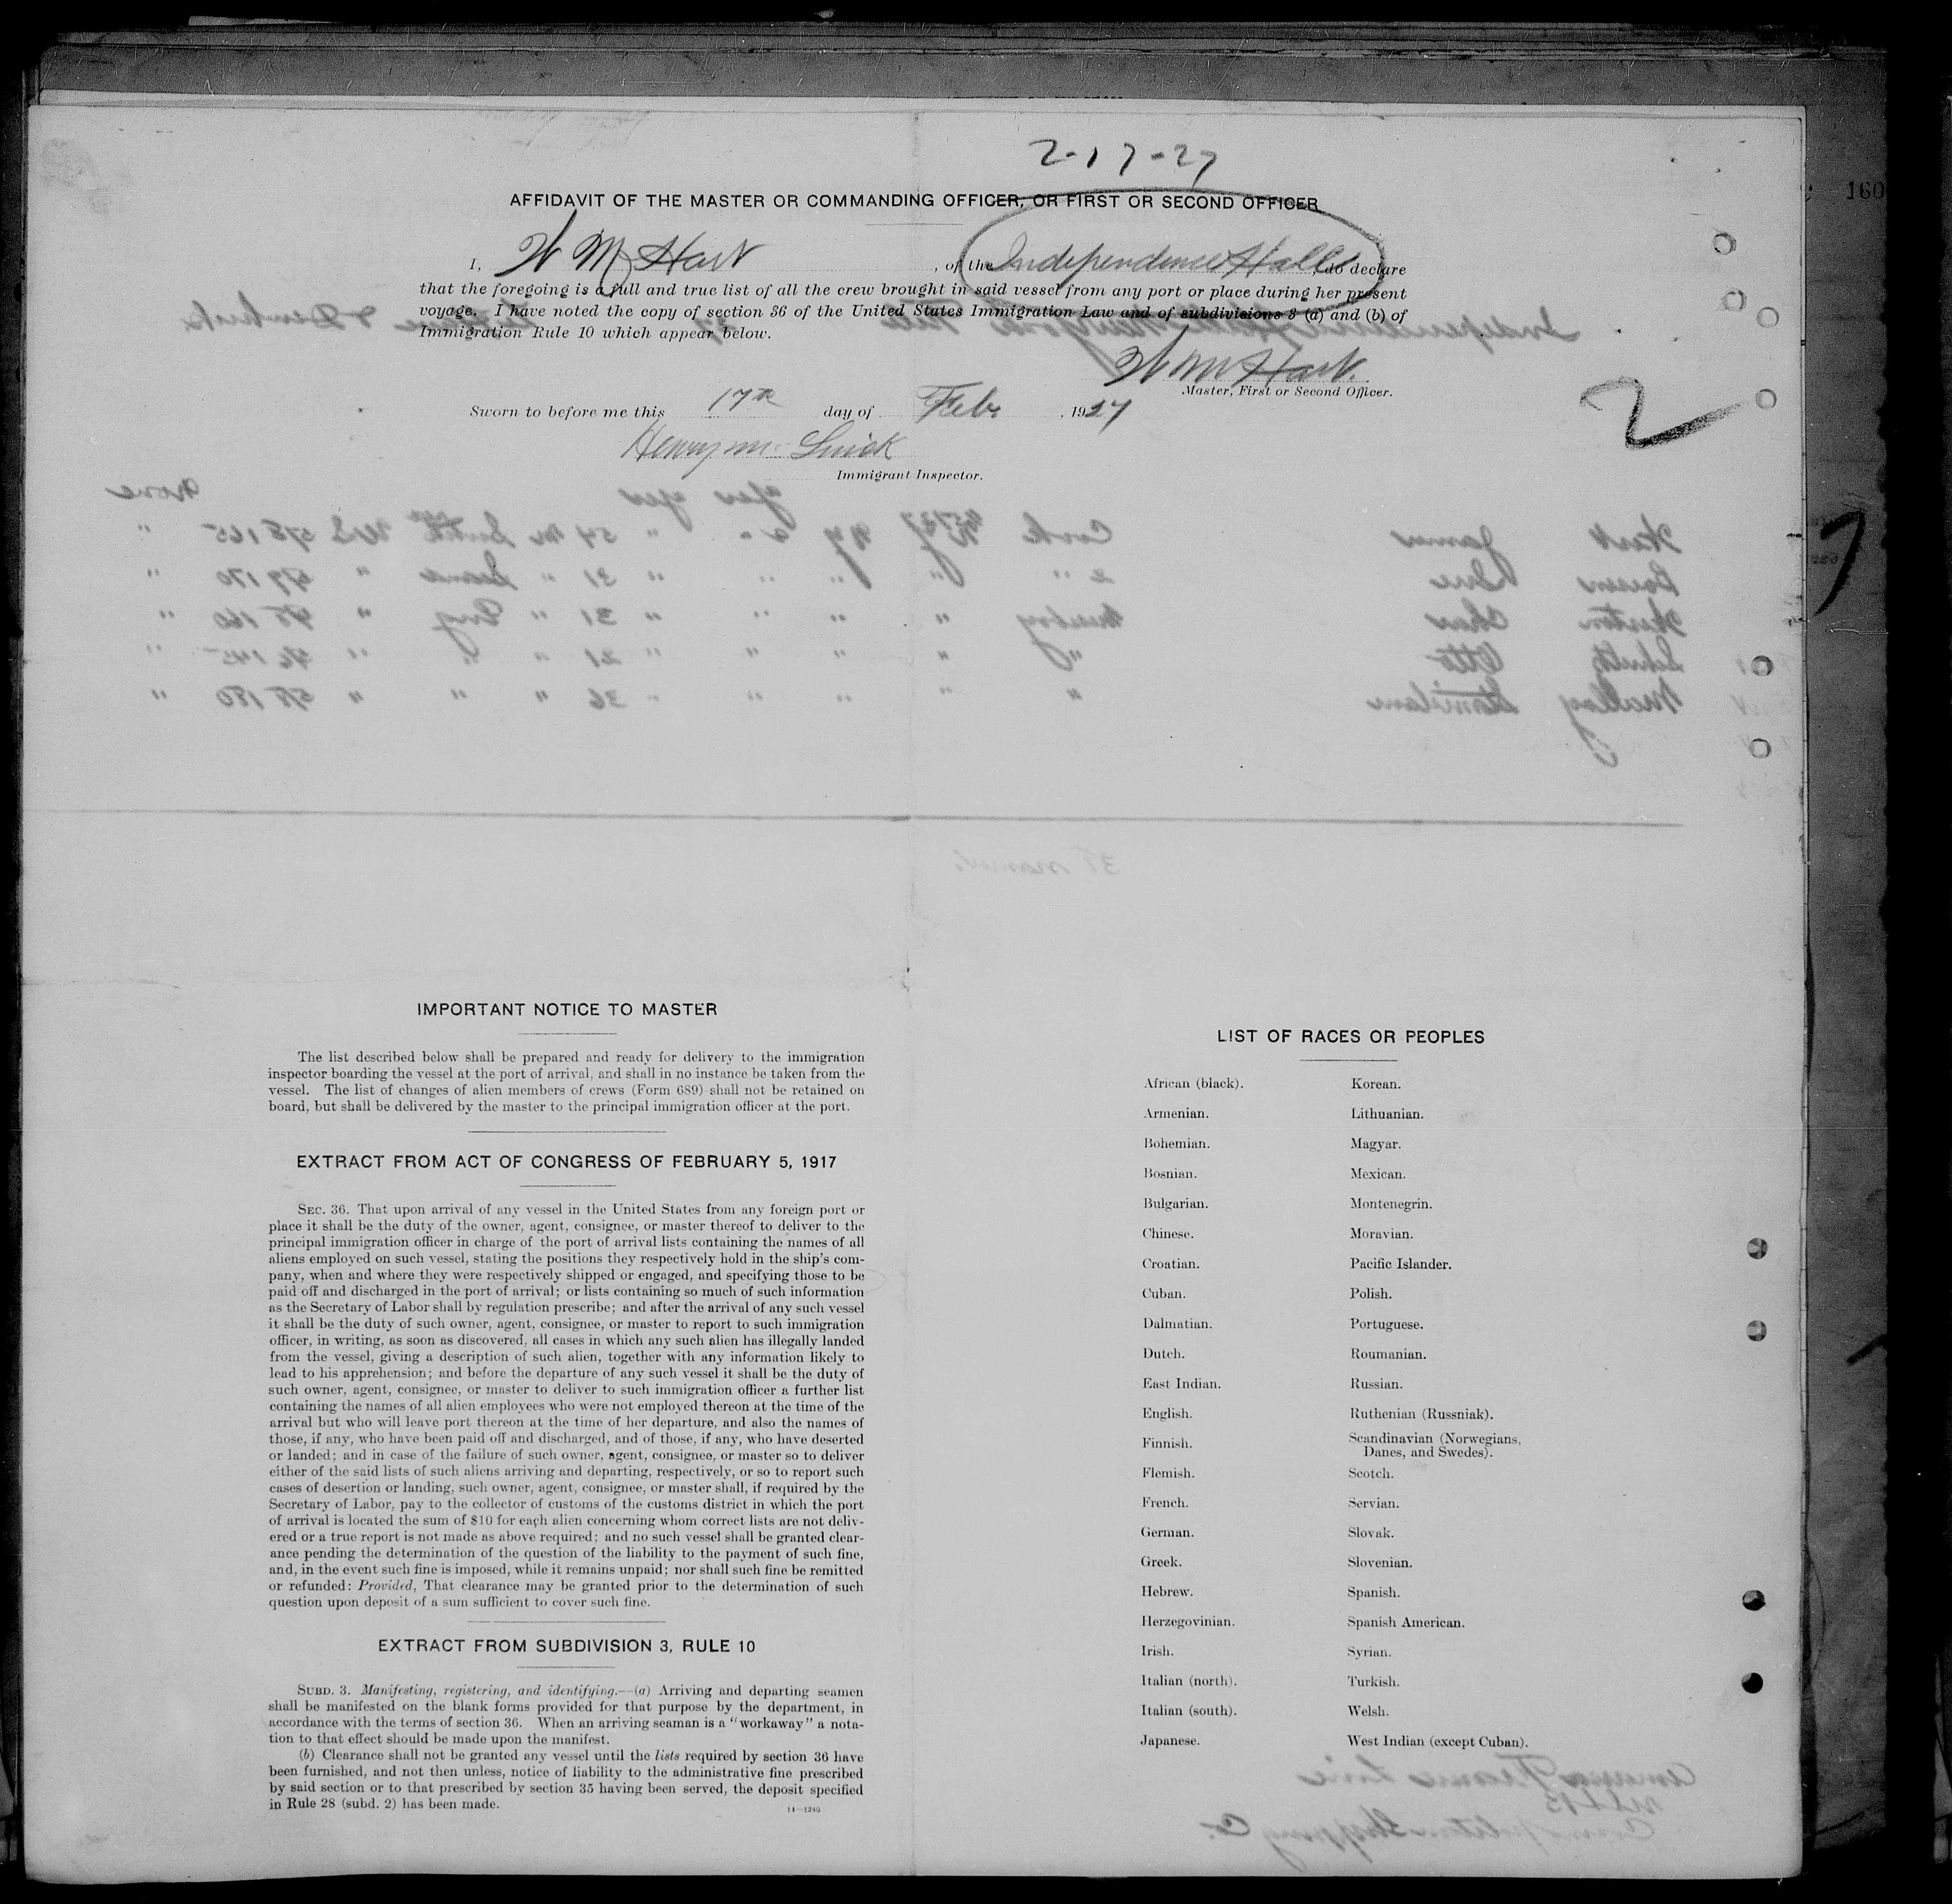 2-17-27
160
AFFIDAVIT OF THE MASTER OR COMMANDING OFFICER, OR FIRST OR SECOND OFFICER
I, W M Hart, of the Independence Hall, do declare
that the foregoing is a full and true list of all the crew brought in said vessel from any port or place during her present
voyage. I have noted the copy of section 36 of the United States Immigration Law and of subdivisions 3 (a) and (b) of
Immigration Rule 10 which appear below.
W M Hart.
Master, First or Second Officer.
2
Sworn to before me this 17th day of Feb. , 1927
Henry M.
Immigrant Inspector.
IMPORTANT NOTICE TO MASTER
The list described below shall be prepared and ready for delivery to the immigration
inspector boarding the vessel at the port of arrival, and shall in no instance be taken from the
vessel. The list of changes of alien members of crews (Form 689) shall not be retained on
board, but shall be delivered by the master to the principal immigration officer at the port.
EXTRACT FROM ACT OF CONGRESS OF FEBRUARY 5, 1917
SEC. 36. That upon arrival of any vessel in the United States from any foreign port or
place it shall be the duty of the owner, agent, consignee, or master thereof to deliver to the
principal immigration officer in charge of the port of arrival lists containing the names of all
aliens employed on such vessel, stating the positions they respectively hold in the ship's com-
pany, when and where they were respectively shipped or engaged, and specifying those to be
paid off and discharged in the port of arrival; or lists containing so much of such information
as the Secretary of Labor shall by regulation prescribe; and after the arrival of any such vessel
it shall be the duty of such owner, agent, consignee, or master to report to such immigration
officer, in writing, as soon as discovered, all cases in which any such alien has illegally landed
from the vessel, giving a description of such alien, together with any information likely to
lead to his apprehension; and before the departure of any such vessel it shall be the duty of
such owner, agent, consignee, or master to deliver to such immigration officer a further list
containing the names of all alien employees who were not employed thereon at the time of the
arrival but who will leave port thereon at the time of her departure, and also the names of
those, if any, who have been paid off and discharged, and of those, if any, who have deserted
or landed; and in case of the failure of such owner, agent, consignee, or master so to deliver
either of the said lists of such aliens arriving and departing, respectively, or so to report such
cases of desertion or landing, such owner, agent, consignee, or master shall, if required by the
Secretary of Labor, pay to the collector of customs of the customs district in which the port
of arrival is located the sum of $10 for each alien concerning whom correct lists are not deliv-
ered or a true report is not made as above required; and no such vessel shall be granted clear-
ance pending the determination of the question of the liability to the payment of such fine,
and, in the event such fine is imposed, while it remains unpaid; nor shall such fine be remitted
or refunded: Provided, That clearance may be granted prior to the determination of such
question upon deposit of a sum sufficient to cover such fine.
EXTRACT FROM SUBDIVISION 3, RULE 10
SUBD. 3. Manifesting, registering, and identifying.—(a) Arriving and departing seamen
shall be manifested on the blank forms provided for that purpose by the department, in
accordance with the terms of section 36. When an arriving seaman is a "workaway" a nota-
tion to that effect should be made upon the manifest.
(b) Clearance shall not be granted any vessel until the lists required by section 36 have
been furnished, and not then unless, notice of liability to the administrative fine prescribed
by said section or to that prescribed by section 35 having been served, the deposit specified
in Rule 28 (subd. 2) has been made.
14—1240
LIST OF RACES OR PEOPLES
African (black).
Armenian.
Bohemian.
Bosnian.
Bulgarian.
Chinese.
Croatian.
Cuban.
Dalmatian.
Dutch.
East Indian.
English.
Finnish.
Flemish.
French.
German.
Greek.
Hebrew.
Herzegovinian.
Irish.
Italian (north).
Italian (south).
Japanese.
Korean.
Lithuanian.
Magyar.
Mexican.
Montenegrin.
Moravian.
Pacific Islander.
Polish.
Portuguese.
Roumanian.
Russian.
Ruthenian (Russniak).
Scandinavian (Norwegians,
Danes, and Swedes).
Scotch.
Servian.
Slovak.
Slovenian.
Spanish.
Spanish American.
Syrian.
Turkish.
Welsh.
West Indian (except Cuban).